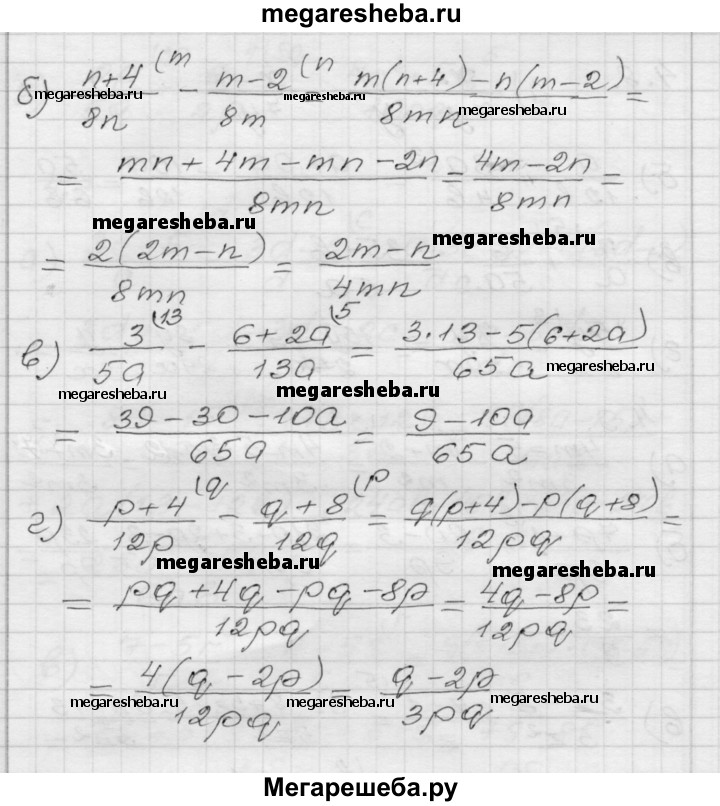 megaresheba.ru
б) (n+4)/(8n) (m − (m−2)/(8m) (n = (m(n+4)−n(m−2))/(8mn) =
megaresheba.ru megaresheba.ru megaresheba.ru
= (mn+4m−mn−2n)/(8mn) = (4m−2n)/(8mn) =
megaresheba.ru megaresheba.ru
= (2(2m−n))/(8mn) = (2m−n)/(4mn)
в) 3/(5a) (13 − (6+2a)/(13a) (5 = (3·13−5(6+2a))/(65a) =
megaresheba.ru megaresheba.ru megaresheba.ru
= (39−30−10a)/(65a) = (9−10a)/(65a)
г) (p+4)/(12p) (q − (q+8)/(12q) (p = (q(p+4)−p(q+8))/(12pq) =
megaresheba.ru megaresheba.ru
= (pq+4q−pq−8p)/(12pq) = (4q−8p)/(12pq) =
= (4(q−2p))/(12pq) = (q−2p)/(3pq)
megaresheba.ru megaresheba.ru megaresheba.ru
Мегарешеба.ру